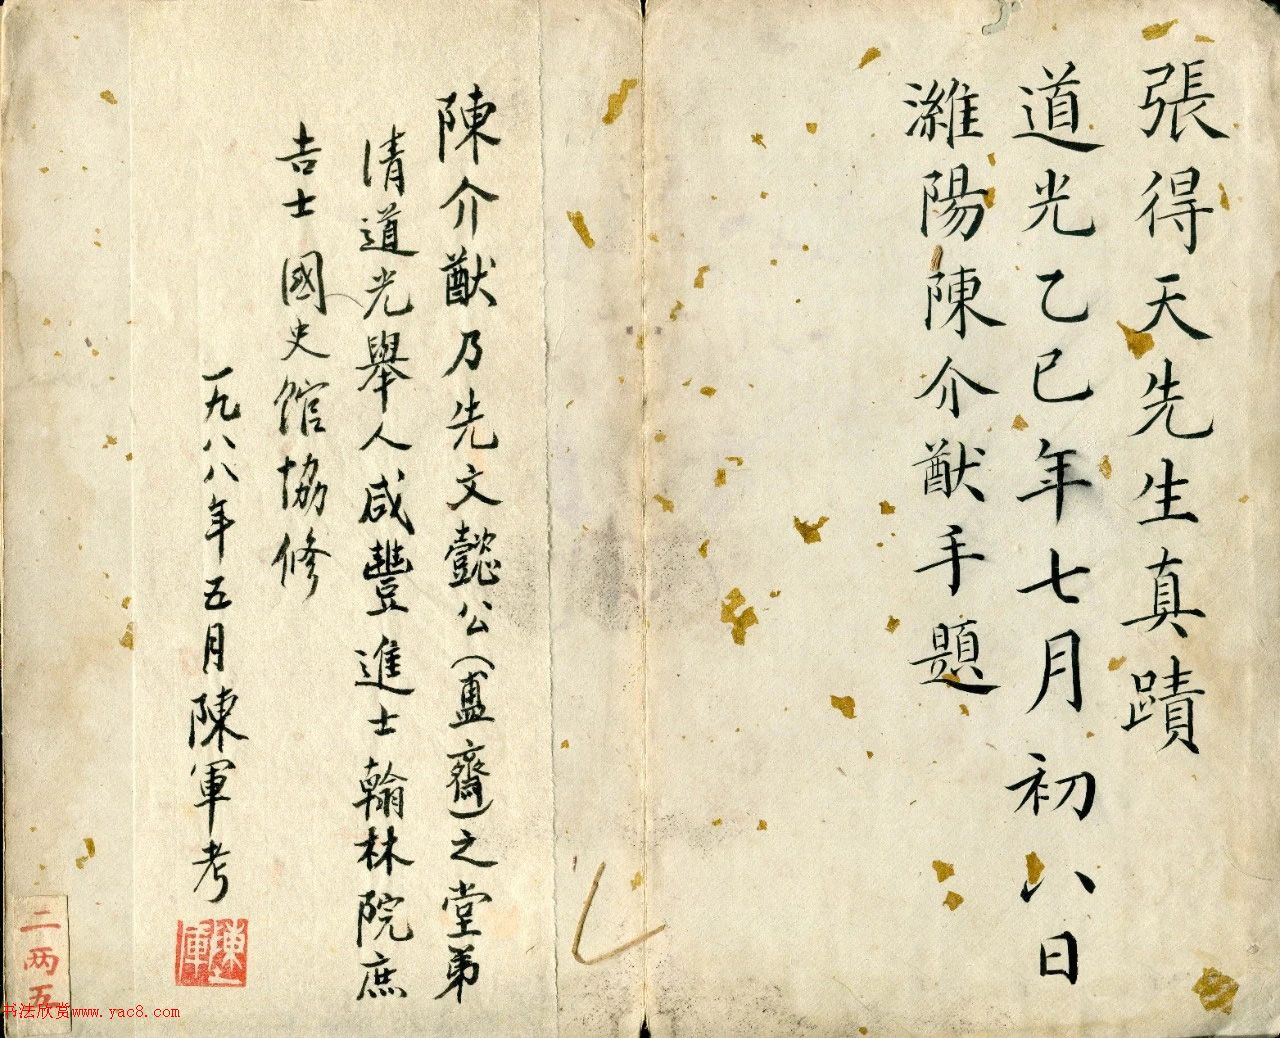 張得天先生真蹟
道光乙巳年七月初八日
濰陽陳介猷手題
陳介猷乃先文懿公（簠齋）之堂弟
清道光舉人咸豐進士翰林院庶
吉士國史館協修
一九八八年五月陳軍考
陳軍
二两五
书法欣赏www.yac8.com